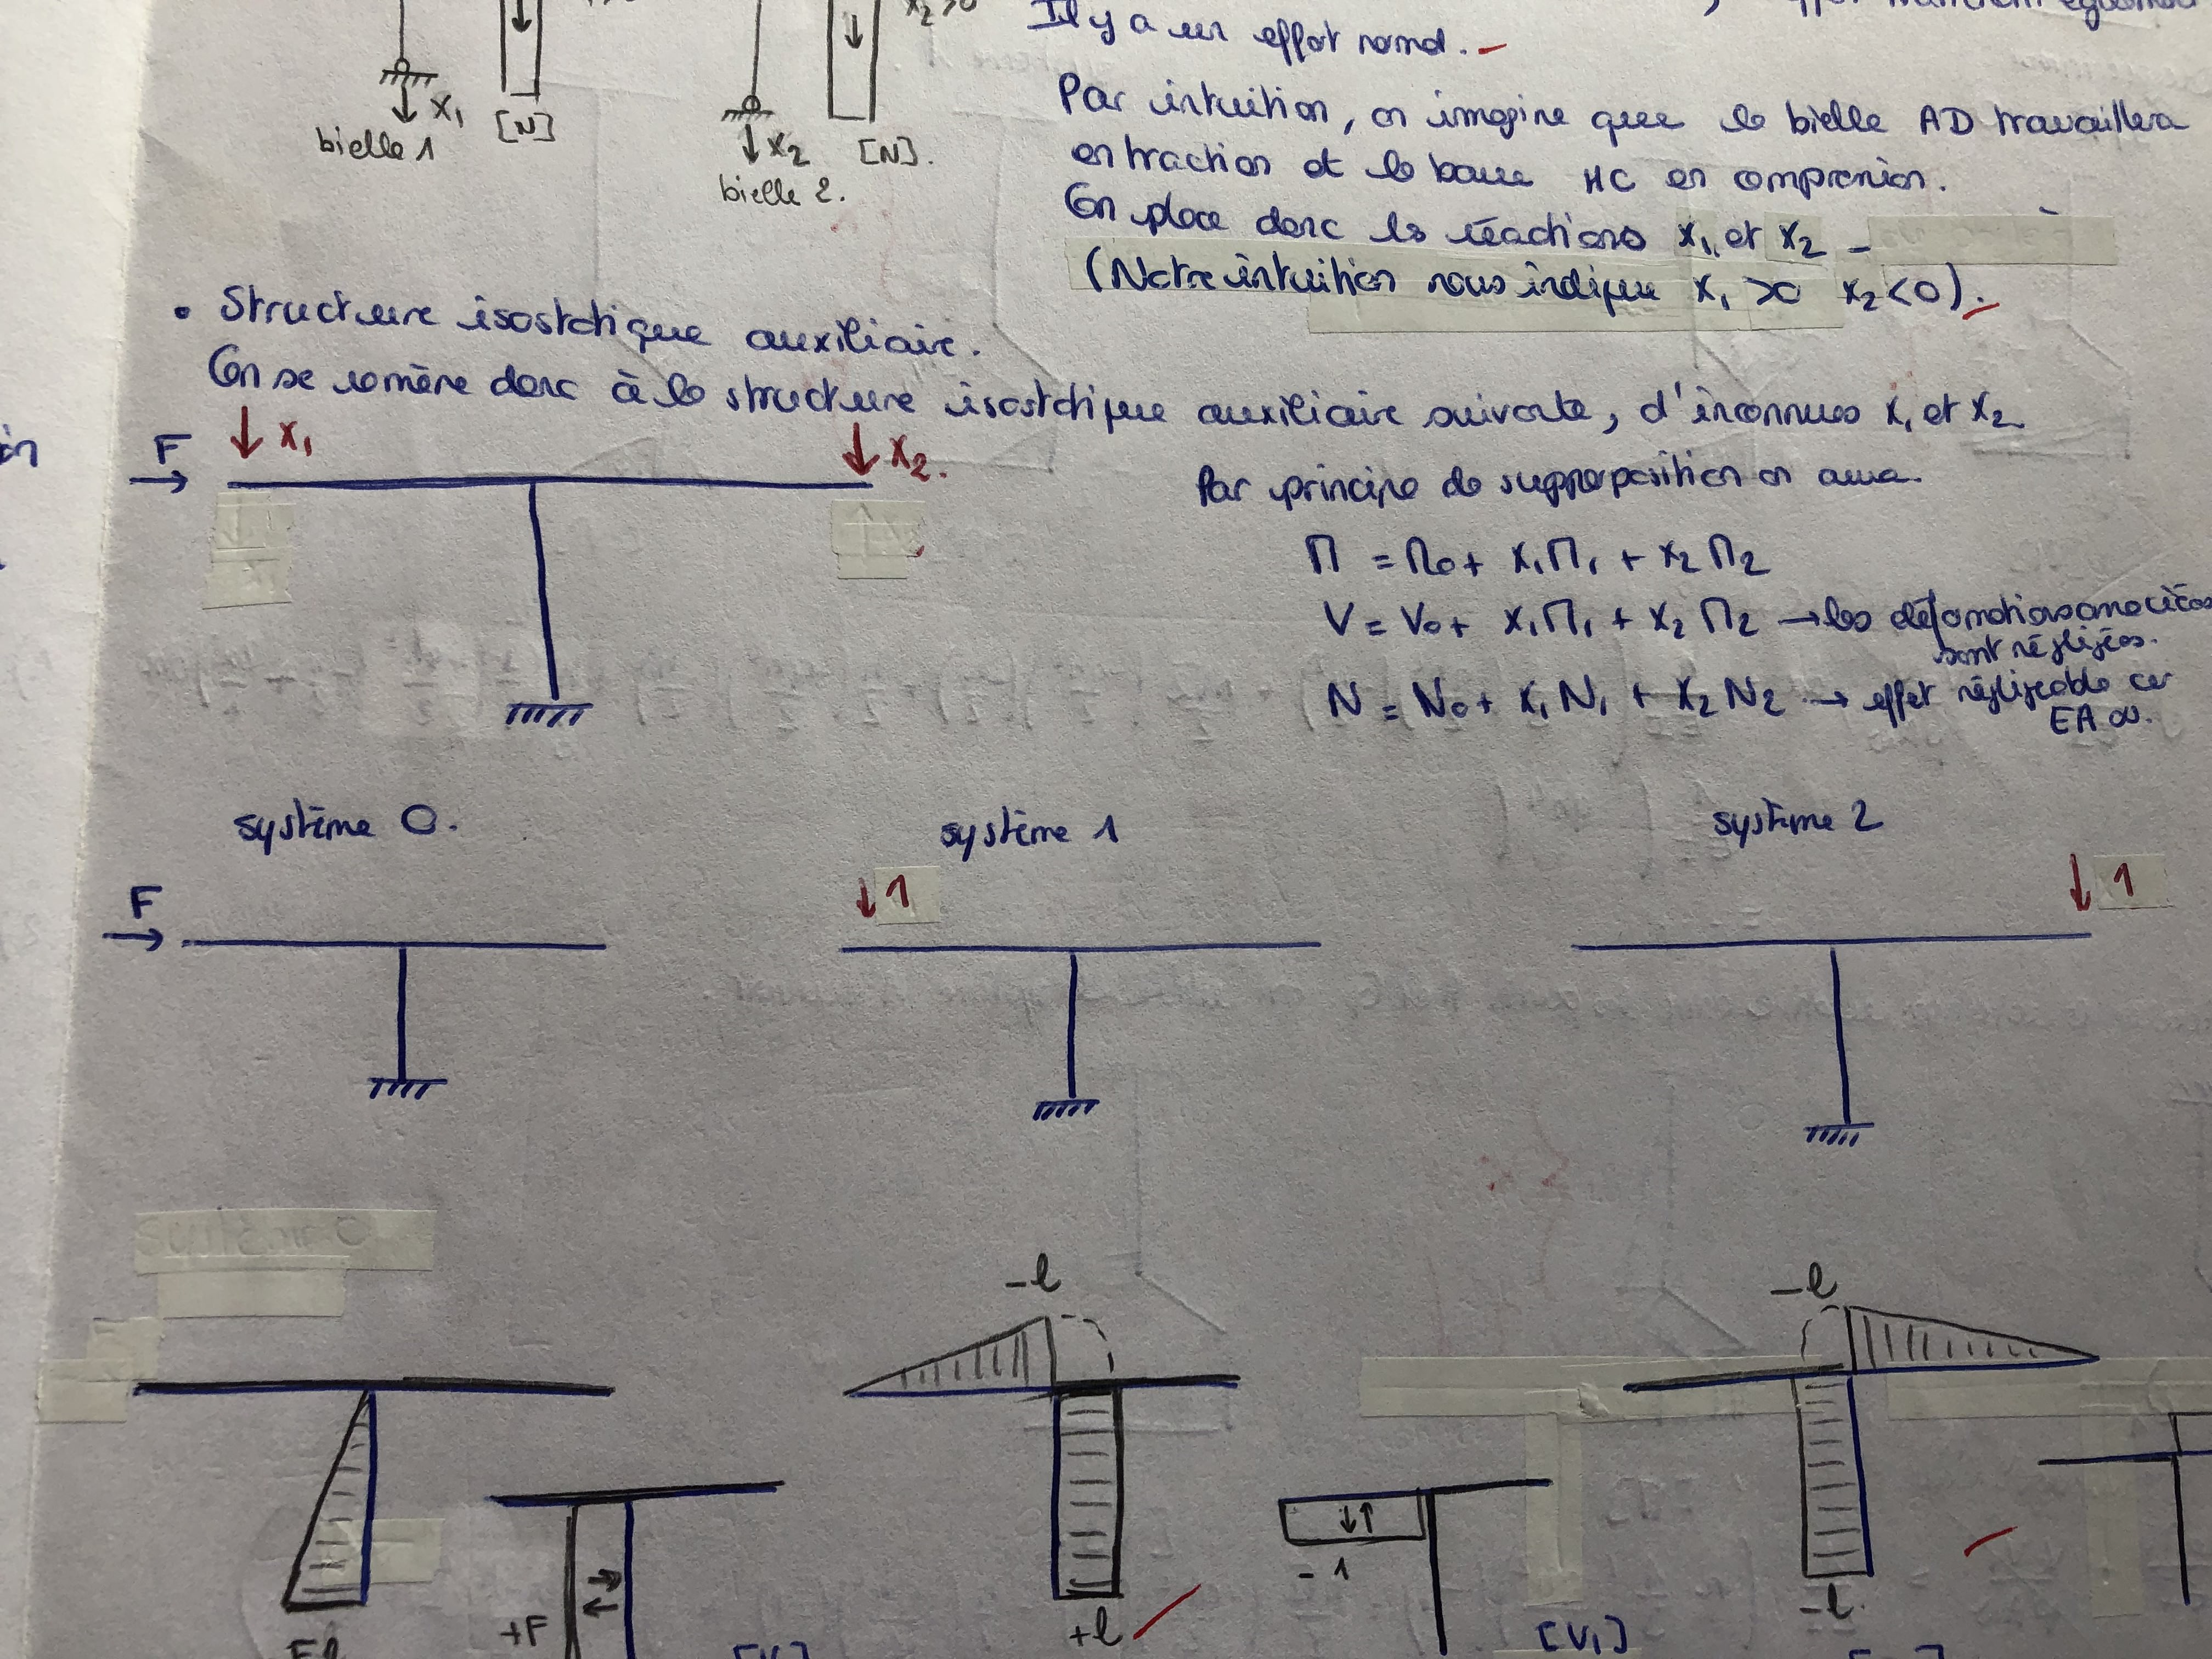 Il y a un effort normal.
Par intuition, on imagine que la bielle AD travaillera
en traction et la barre HC en compression.
On place donc les réactions X₁ et X₂
(Notre intuition nous indique X₁ > X₂ < 0).
bielle 1
X₁
[N]
bielle 2.
X₂
[N].
X₂ > 0
• Structure isostatique auxiliaire.
On se ramène donc à la structure isostatique auxiliaire suivante, d'inconnues X₁ et X₂
F
X₁
X₂.
Par principe de superposition on aura.
M = M₀ + X₁M₁ + X₂M₂
V = V₀ + X₁M₁ + X₂M₂ → les déformations associées
sont négligées.
N = N₀ + X₁N₁ + X₂N₂ → effet négligeable car
EA ∞.
système 0.
système 1
système 2
F
1
1
Fl
-l
+l
-l
-l
+F
-1
[V₁]